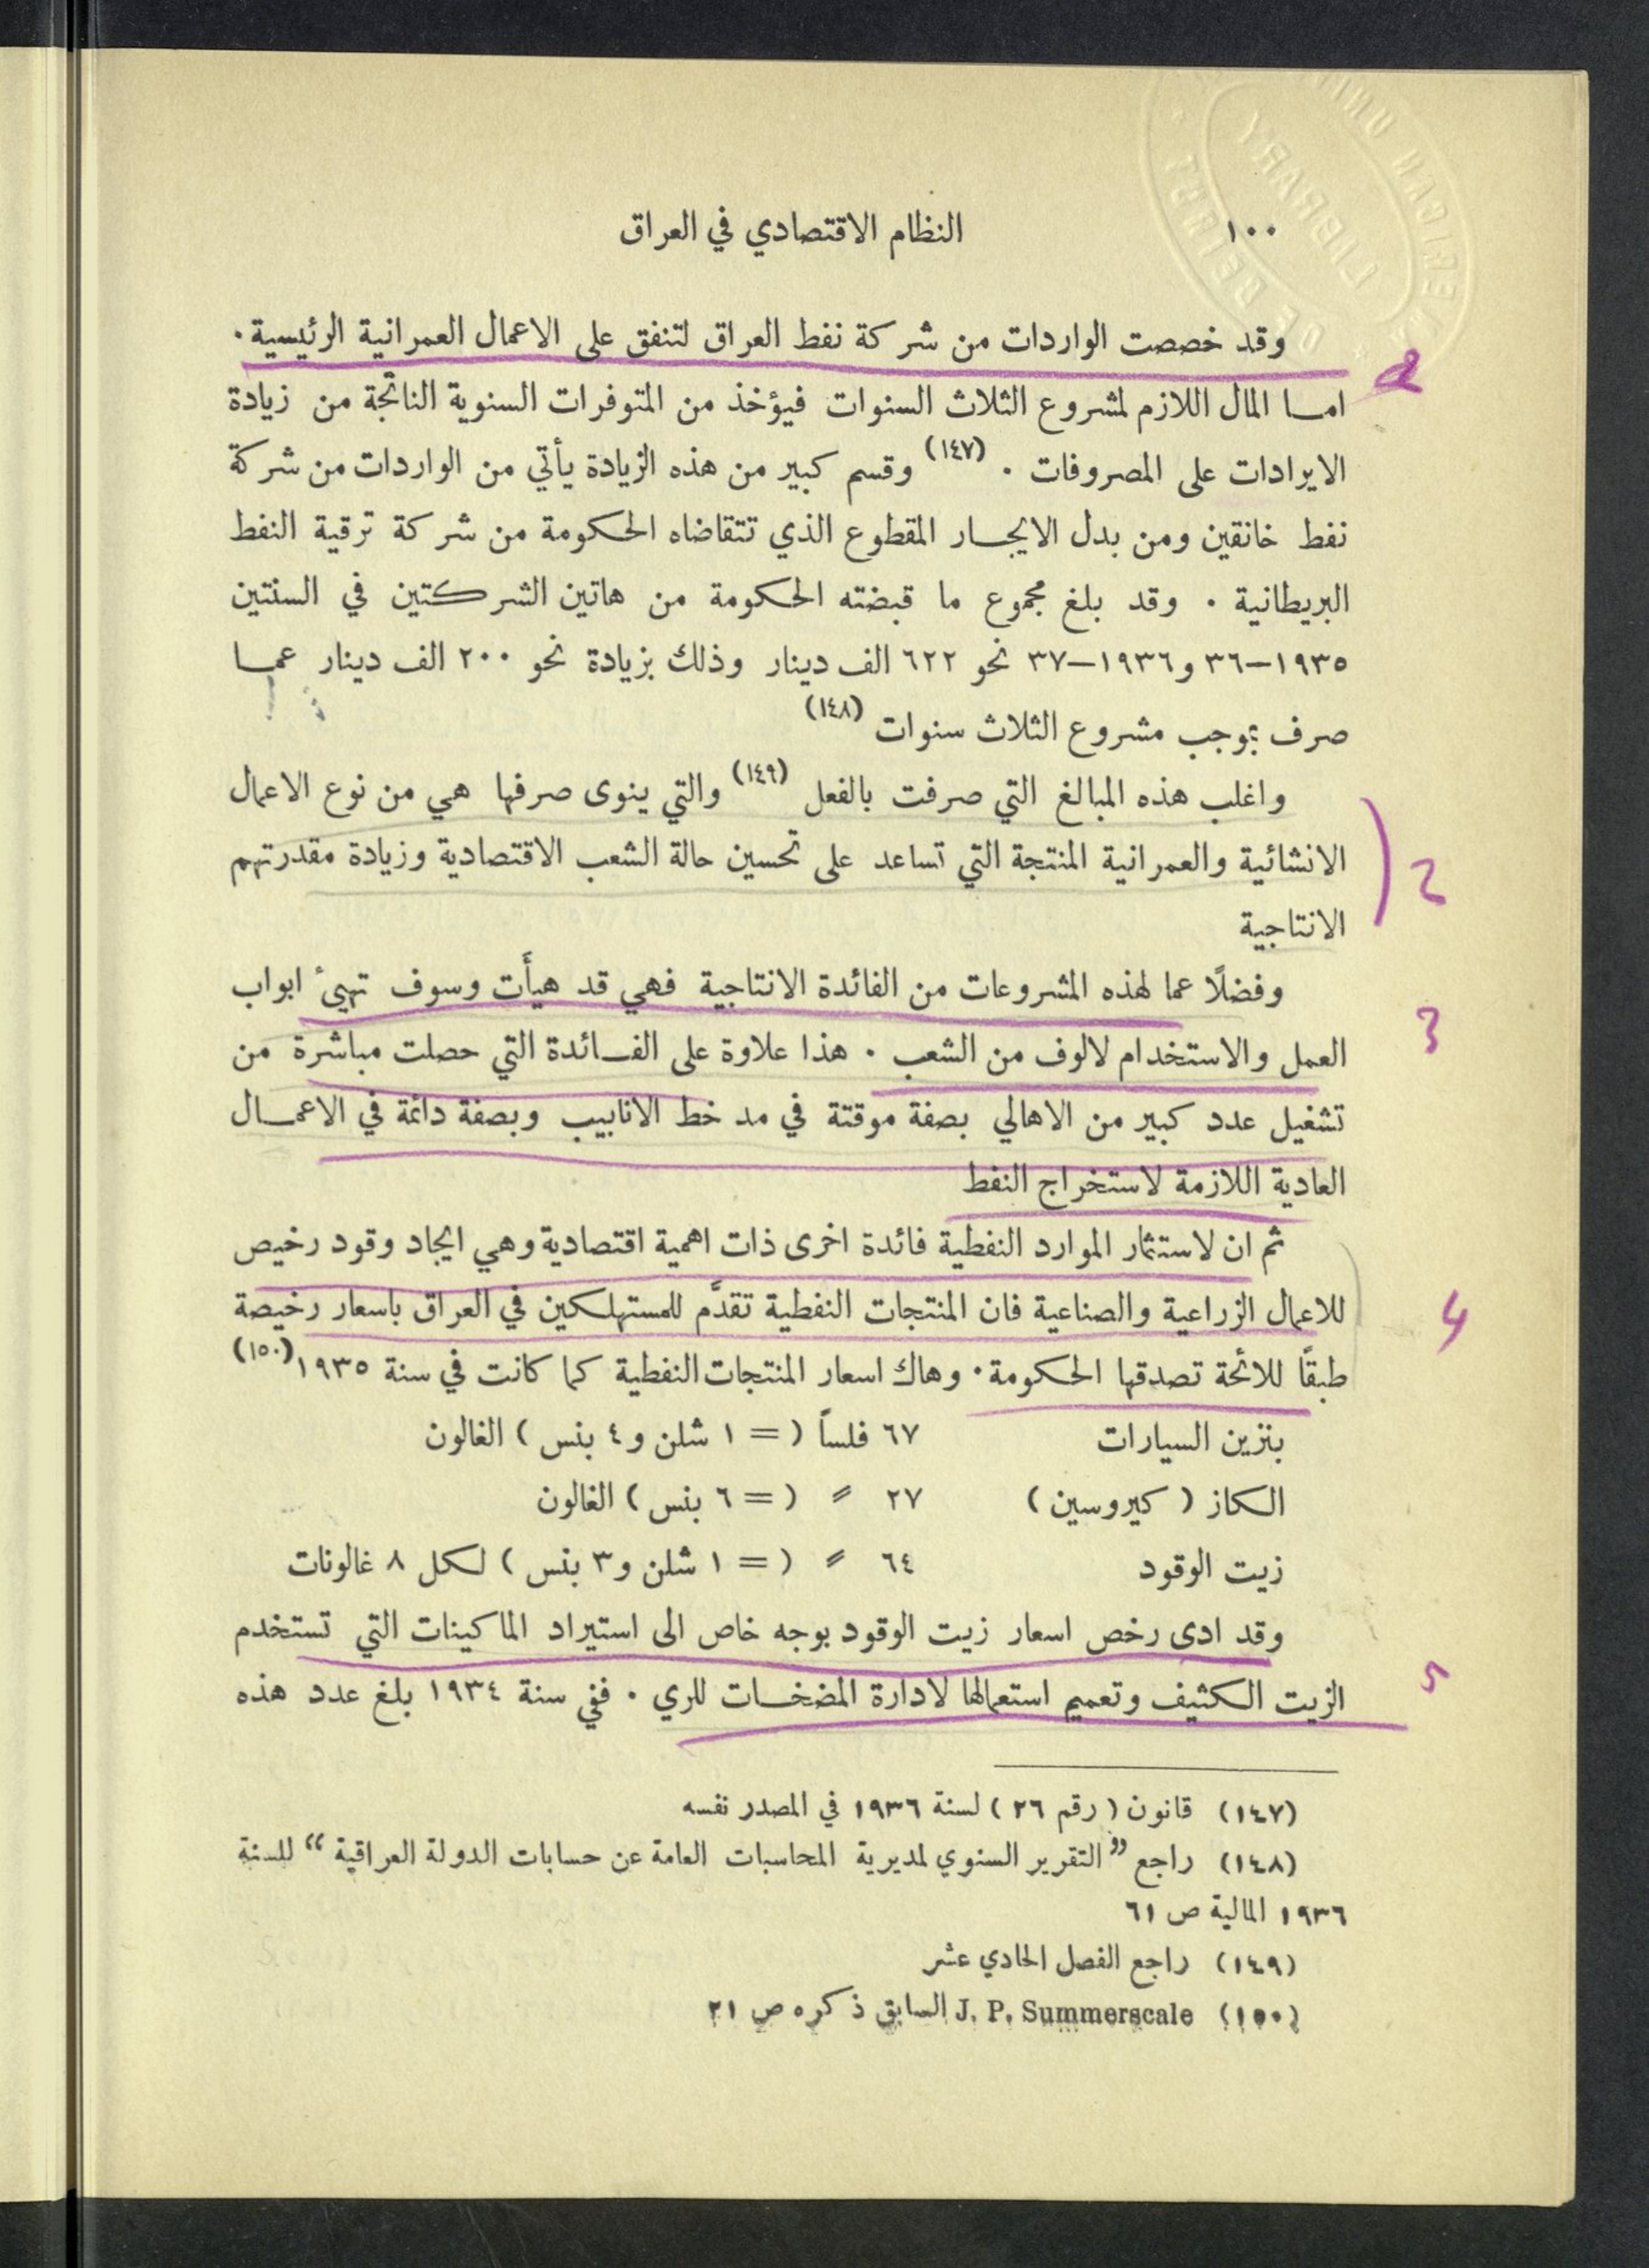 ١٠٠ النظام الاقتصادي في العراق
وقد خصصت الواردات من شركة نفط العراق لتنفق على الاعمال العمرانية الرئيسية .
اما المال اللازم لمشروع الثلاث السنوات فيؤخذ من المتوفرات السنوية الناتجة من زيادة
الايرادات على المصروفات . (١٤٧) وقسم كبير من هذه الزيادة يأتي من الواردات من شركة
نفط خانقين ومن بدل الايجار المقطوع الذي تتقاضاه الحكومة من شركة ترقية النفط
البريطانية . وقد بلغ مجموع ما قبضته الحكومة من هاتين الشركتين في السنتين
١٩٣٥–٣٦ و١٩٣٦–٣٧ نحو ٦٢٢ الف دينار وذلك بزيادة نحو ٢٠٠ الف دينار عما
صرف بموجب مشروع الثلاث سنوات (١٤٨)
واغلب هذه المبالغ التي صرفت بالفعل (١٤٩) والتي ينوى صرفها هي من نوع الاعمال
الانشائية والعمرانية المنتجة التي تساعد على تحسين حالة الشعب الاقتصادية وزيادة مقدرتهم
الانتاجية
وفضلًا عما لهذه المشروعات من الفائدة الانتاجية فهي قد هيأَت وسوف تهيئ ابواب
العمل والاستخدام لالوف من الشعب . هذا علاوة على الفائدة التي حصلت مباشرة من
تشغيل عدد كبير من الاهالي بصفة موقتة في مد خط الانابيب وبصفة دائمة في الاعمال
العادية اللازمة لاستخراج النفط
ثم ان لاستثمار الموارد النفطية فائدة اخرى ذات اهمية اقتصادية وهي ايجاد وقود رخيص
للاعمال الزراعية والصناعية فان المنتجات النفطية تقدَّم للمستهلكين في العراق باسعار رخيصة
طبقًا للائحة تصدقها الحكومة . وهاك اسعار المنتجات النفطية كما كانت في سنة ١٩٣٥ (١٥٠)
بنزين السيارات ٦٧ فلساً ( = ١ شلن و٤ بنس ) الغالون
الكاز ( كيروسين ) ٢٧ ‌〃 ( = ٦ بنس ) الغالون
زيت الوقود ٦٤ 〃 ( = ١ شلن و٣ بنس ) لكل ٨ غالونات
وقد ادى رخص اسعار زيت الوقود بوجه خاص الى استيراد الماكينات التي تستخدم
الزيت الكثيف وتعميم استعمالها لادارة المضخات للري . ففي سنة ١٩٣٤ بلغ عدد هذه
(١٤٧) قانون ( رقم ٢٦ ) لسنة ١٩٣٦ في المصدر نفسه
(١٤٨) راجع "التقرير السنوي لمديرية المحاسبات العامة عن حسابات الدولة العراقية" للسنة
١٩٣٦ المالية ص ٦١
(١٤٩) راجع الفصل الحادي عشر
(١٥٠) J. P. Summerscale السابق ذكره ص ٢١
2
3
4
5